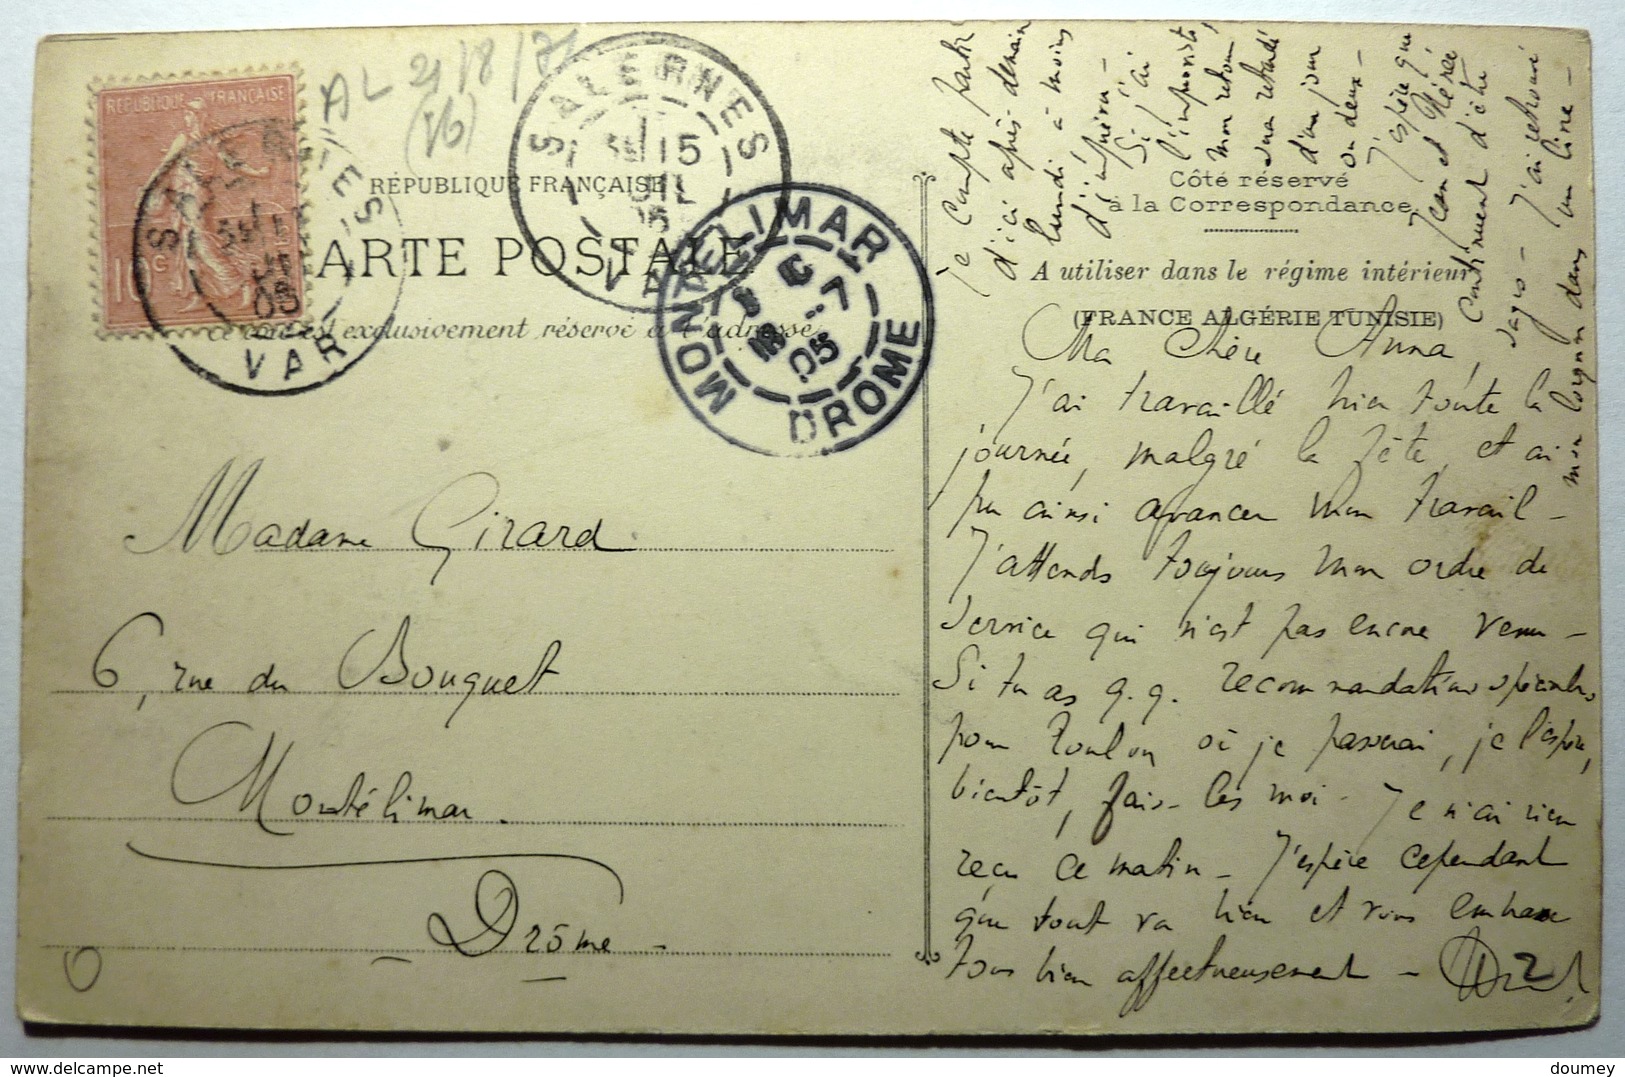 AL 21/8/71
(16)
RÉPUBLIQUE FRANÇAISE
10c
SALERNES
VAR
05
SALERNES
15
JUIL
05
VAR
MONTELIMAR
DROME
18 -7
05
RÉPUBLIQUE FRANÇAISE
CARTE POSTALE
Ce côté est exclusivement réservé à l'adresse
Côté réservé
à la Correspondance
A utiliser dans le régime intérieur
(FRANCE ALGÉRIE TUNISIE)
Madame Girard
6, rue du Bouquet
Montélimar.
Drôme -
Ma Chère Anna,
J'ai travaillé hier toute la
journée, malgré la fête, et ai
pu ainsi avancer mon travail -
J'attends toujours mon ordre de
service qui n'est pas encore venu -
Si tu as q.q. recommandations spéciales
pour Toulon où je passerai, je l'espère,
bientôt, fais-les moi - Je n'ai rien
reçu ce matin - J'espère cependant
que tout va bien et vous embrasse
tous bien affectueusement -
Je compte partir
d'ici après demain
lundi à moins
d'imprévu -
Si j'ai
l'imprévu,
mon retour
sera retardé
d'un jour
ou deux -
J'espère que
Jean et
continuent d'être
sages - J'ai retrouvé
mon lorgnon dans un livre -
doumey